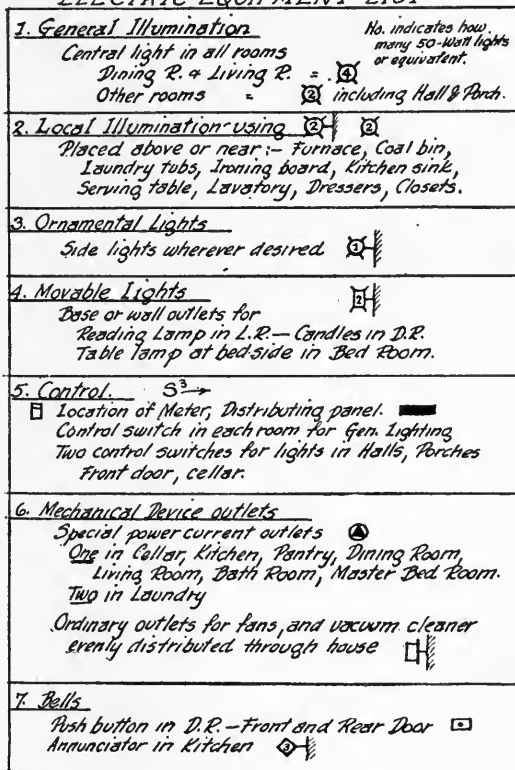 ELECTRIC EQUIPMENT LIST
1. General Illumination
No. indicates how
many 50-Watt lights
or equivalent.
Central light in all rooms
Dining R. & Living R. = 4
Other rooms = 2 including Hall & Porch.
2. Local Illumination-using 2 2
Placed above or near:- Furnace, Coal bin,
Laundry tubs, Ironing board, Kitchen sink,
Serving table, Lavatory, Dressers, Closets.
3. Ornamental Lights
Side lights wherever desired 1
4. Movable Lights
2
Base or wall outlets for
Reading Lamp in L.R.-Candles in D.R.
Table lamp at bed-side in Bed Room.
5. Control. S3
Location of Meter, Distributing panel.
Control switch in each room for Gen. Lighting
Two control switches for lights in Halls, Porches
Front door, cellar.
6. Mechanical Device outlets
Special power current outlets
One in Cellar, Kitchen, Pantry, Dining Room,
Living Room, Bath Room, Master Bed Room.
Two in Laundry
Ordinary outlets for fans, and vacuum cleaner
evenly distributed through house
7. Bells
Push button in D.R.-Front and Rear Door
Annunciator in Kitchen 3